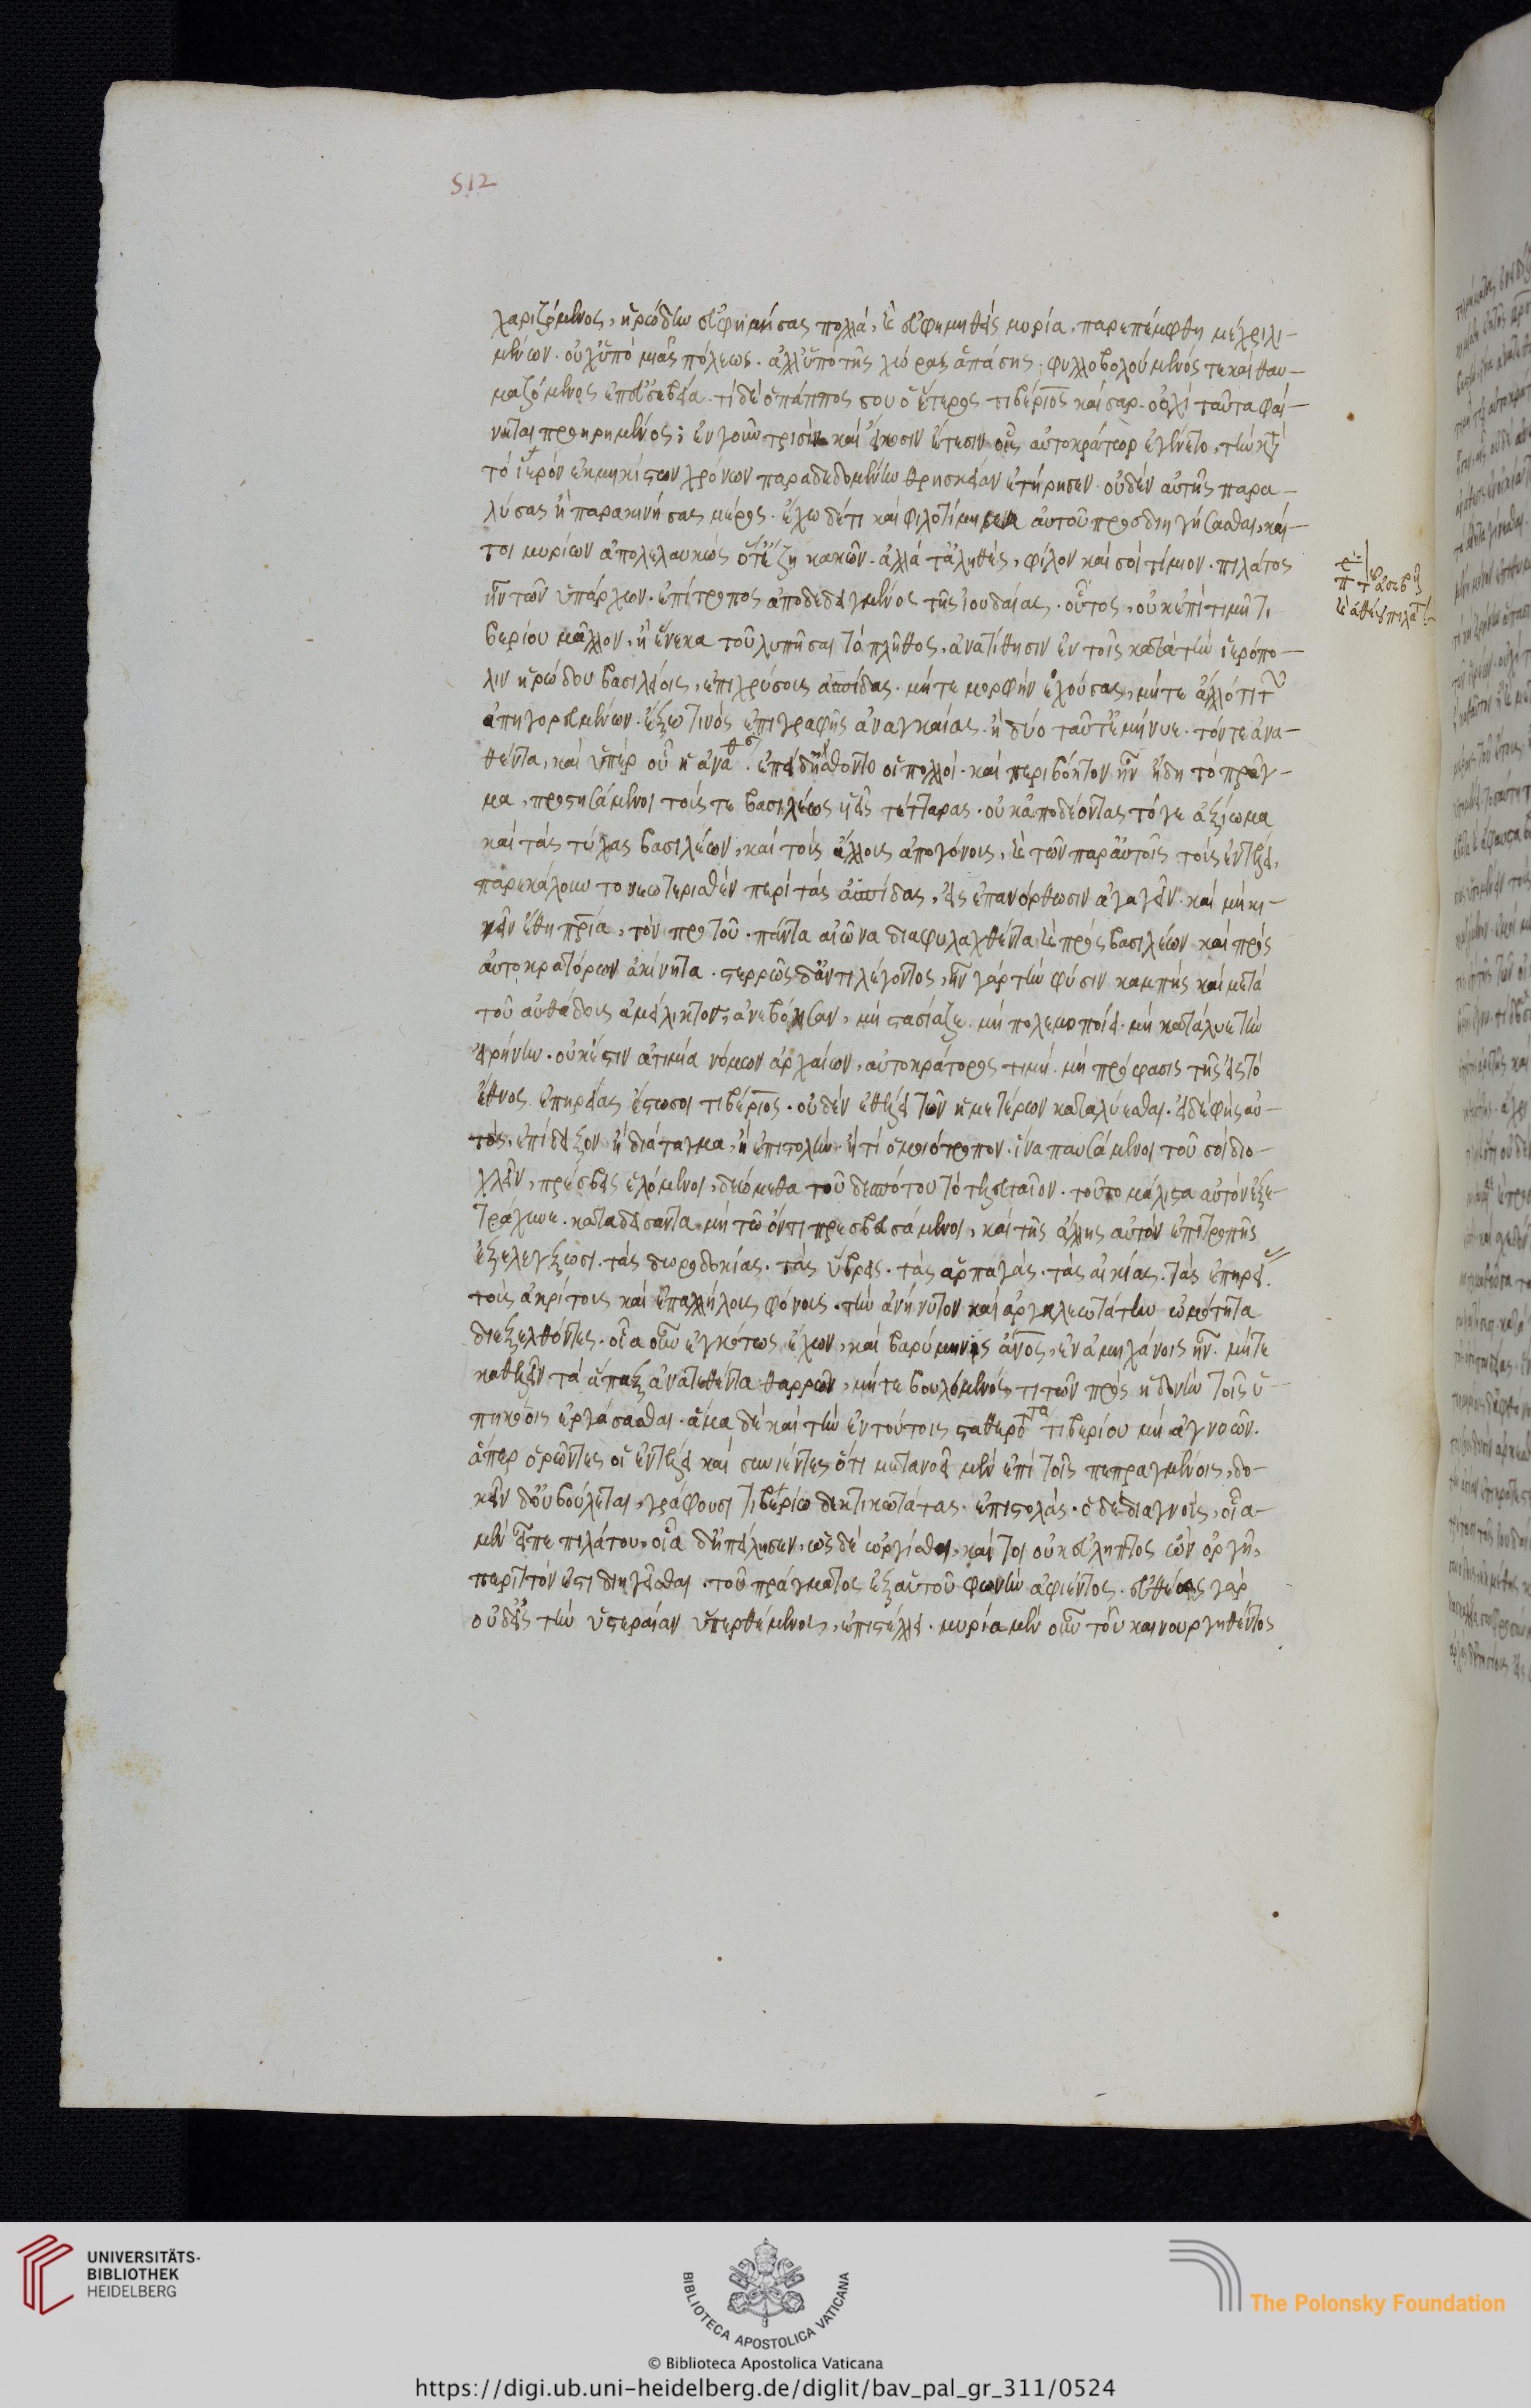 512
χαριζόμενος, ἡρώδην εὐφημήσας πολλά, καὶ εὐφημηθεὶς μυρία, παρεπέμφθη μέχρι λι-
μένων. οὐχ ὑπὸ μιᾶς πόλεως. ἀλλ' ὑπὸ τῆς χώρας ἁπάσης. φυλλοβολούμενός τε καὶ θαυ-
μαζόμενος ἐπ' εὐσεβεία. τί δὲ ὁ πάππος σου ὁ ἕτερος τιβέριος καίσαρ. οὐχὶ ταῦτα φαί-
νεται προηρημένος; ἐν γοῦν τρισὶν καὶ εἴκοσιν ἔτεσιν οἷς αὐτοκράτωρ ἐγένετο, τὴν κατὰ
τὸ ἱερὸν ἐκ μηκίστων χρόνων παραδεδομένην θρησκείαν ἐτήρησεν. οὐδὲν αὐτῆς παρα-
λύσας ἢ παρακινήσας μέρος. ἔχω δέ τι καὶ φιλοτίμημα αὐτοῦ προσδιηγήσασθαι, καί-
τοι μυρίων ἀπολελαυκὼς ὅτε ἔζη κακῶν. ἀλλὰ τἀληθὲς, φίλον καὶ σοὶ τίμιον. πιλάτος
ἦν τῶν ὑπάρχων. ἐπίτροπος ἀποδεδειγμένος τῆς ἰουδαίας. οὗτος, οὐκ ἐπὶ τιμῆ τι
βερίου μᾶλλον, ἢ ἕνεκα τοῦ λυπῆσαι τὸ πλῆθος, ἀνατίθησιν ἐν τοῖς κατὰ τὴν ἱερόπο-
λιν ἡρώδου βασιλείοις, ἐπιχρύσους ἀσπίδας. μήτε μορφὴν ἐχούσας, μήτε ἄλλό τι τῶν
ἀπηγορευμένων. ἔξω τινὸς ἐπιγραφῆς ἀναγκαίας. ἢ δύο ταῦτ' ἐμήνυε. τόν τε ἀνα-
θέντα, καὶ ὑπὲρ οὗ ἡ ἀνάθεσις. ἐπεὶ δὲ ἤσθοντο οἱ πολλοί. καὶ περιβόητον ἦν ἤδη τὸ πρᾶγ-
μα, προστησάμενοι τούς τε βασιλέως υἱεῖς τέτταρας. οὐκ ἀποδέοντας τό γε ἀξίωμα
καὶ τὰς τύχας βασιλέων, καὶ τοὺς ἄλλους ἀπογόνους, καὶ τῶν παρ' αὐτοῖς τοὺς ἐν τέλει,
παρεκάλουν τὸ νεωτερισθὲν περὶ τὰς ἀσπίδας, εἰς ἐπανόρθωσιν ἀγαγεῖν. καὶ μὴ κι-
νεῖν ἔθη πάτρια, τὸν πρὸ τοῦ. πάντα αἰῶνα διαφυλαχθέντα καὶ πρὸς βασιλέων καὶ πρὸς
αὐτοκρατόρων ἀκίνητα. στερρῶς δ' ἀντιλέγοντος, ἦν γὰρ τὴν φύσιν καμπὴς καὶ μετὰ
τοῦ αὐθάδους ἀμείλικτος, ἀνεβόησαν, μὴ στασίαζε. μὴ πολεμοποίει. μὴ κατάλυε τὴν
εἰρήνην. οὐκ ἔστιν ἀτιμία νόμων ἀρχαίων, αὐτοκράτορος τιμή. μὴ πρόφασις τῆς εἰς τὸ
ἔθνος ἐπηρείας ἔστω σοι τιβέριος. οὐδὲν ἐθέλει τῶν ἡμετέρων καταλύεσθαι. εἰ δὲ φὴς αὐ-
τὸς, ἐπίδειξον ἢ διάταγμα, ἢ ἐπιστολὴν. ἤ τι ὁμοιότροπον. ἵνα παυσάμενοι τοῦ σοὶ διο-
χλεῖν, πρέσβεις ἑλόμενοι, δεώμεθα τοῦ δεσπότου τὸ τελευταῖον. τοῦτο μάλιστα αὐτὸν ἐξε-
τράχυνε. καταδείσαντα μὴ τῶ ὄντι πρεσβευσάμενοι, καὶ τῆς ἄλλης αὐτὸν ἐπιτροπῆς
ἐξελέγξωσι. τὰς δωροδοκίας. τὰς ὕβρεις. τὰς ἁρπαγάς. τὰς αἰκίας. τὰς ἐπηρείας.
τοὺς ἀκρίτους καὶ ἐπαλλήλους φόνους. τὴν ἀνήνυτον καὶ ἀργαλεωτάτην ὠμότητα
διεξελθόντες. οἷα οὖν ἐγκότως ἔχων, καὶ βαρύμηνις ἄνος, ἐν ἀμηχάνοις ἦν. μήτε
καθελεῖν τὰ ἅπαξ ἀνατεθέντα θαρρῶν, μήτε βουλόμενός τι τῶν πρὸς ἡδονὴν τοῖς ὑ-
πηκόοις ἐργάσασθαι. ἅμα δὲ καὶ τὴν ἐν τούτοις σταθερότητα τιβερίου μὴ ἀγνοῶν.
ἅπερ ὁρῶντες οἱ ἐν τέλει καὶ συνιέντες ὅτι μετανοεῖ μὲν ἐπὶ τοῖς πεπραγμένοις, δο-
κεῖν δ' οὐ βούλεται, γράφουσι τιβερίω δεητικωτάτας. ἐπιστολάς. ὁ δὲ διαγνοὺς, οἷα
μὲν εἶπε πιλάτον, οἷα δ' ἠπείλησεν, ὡς δὲ ὠργίσθη, καίτοι οὐκ εὔληπτος ὢν ὀργῆ,
περιττόν ἐστι διηγεῖσθαι. τοῦ πράγματος ἐξ αὑτοῦ φωνὴν ἀφιέντος. εὐθέως γὰρ
οὐδ' εἰς τὴν ὑστεραίαν ὑπερθέμενος, ἐπιστέλλει. μυρία μὲν οὖν τοῦ καινουργηθέντος
UNIVERSITÄTS-
BIBLIOTHEK
HEIDELBERG
BIBLIOTECA APOSTOLICA VATICANA
The Polonsky Foundation
© Biblioteca Apostolica Vaticana
https://digi.ub.uni-heidelberg.de/diglit/bav_pal_gr_311/0524